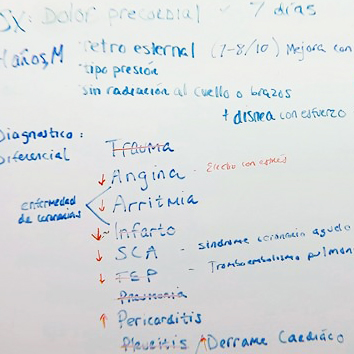 Dx: Dolor precordial - 7 días
años, M retro esternal (7-8/10) Mejora con
tipo presión
sin radiación al cuello o brazos
+ disnea con esfuerzo
Diagnostico:
Diferencial
Trauma
↓ Angina -
enfermedad de coronarias
↓ Arritmia
↓ - Infarto
↓ SCA - sindrome coronario agudo
↓ TEP - Tromboembolismo pulmonar
Pneumonia
↑ Pericarditis
Pleuritis ↑ Derrame Cardiáco